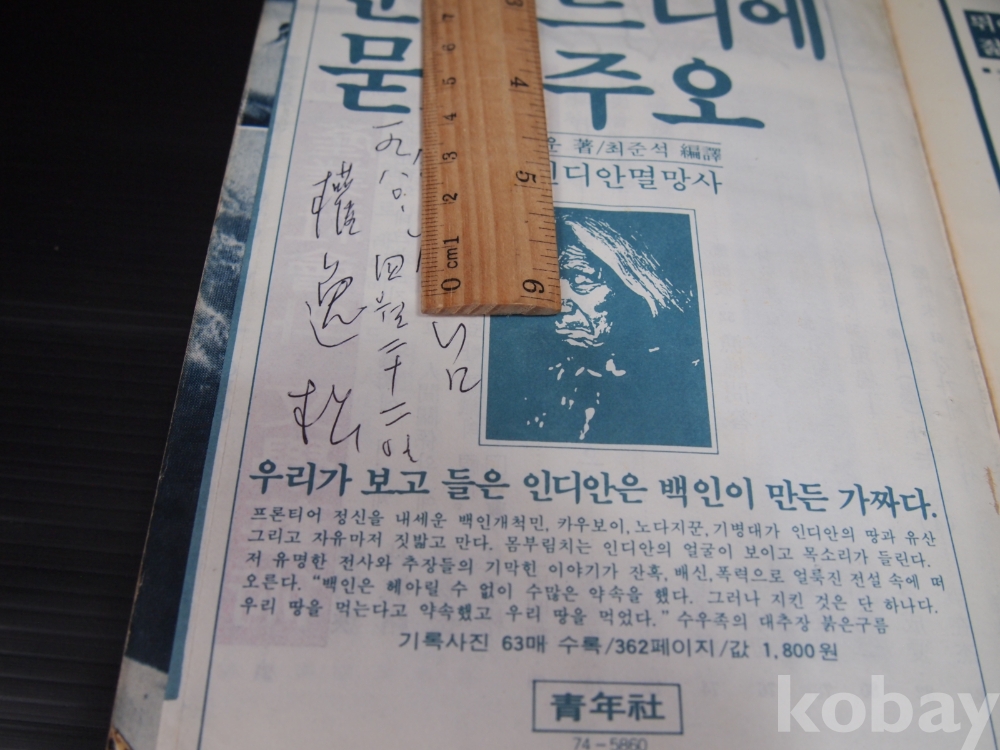 드니에
묻 주오
운 著/최준석 編譯
인디안멸망사
一九八 四월二十二일
님
權逸松
우리가 보고 들은 인디안은 백인이 만든 가짜다.
프론티어 정신을 내세운 백인개척민, 카우보이, 노다지꾼, 기병대가 인디안의 땅과 유산
그리고 자유마저 짓밟고 만다. 몸부림치는 인디안의 얼굴이 보이고 목소리가 들린다.
저 유명한 전사와 추장들의 기막힌 이야기가 잔혹, 배신, 폭력으로 얼룩진 전설 속에 떠
오른다. "백인은 헤아릴 수 없이 수많은 약속을 했다. 그러나 지킨 것은 단 하나다.
우리 땅을 먹는다고 약속했고 우리 땅을 먹었다." 수우족의 대추장 붉은구름
기록사진 63매 수록/362페이지/값 1,800원
靑年社
74-5860
0 cm1 2 3 4 5 6 7
3 4 5 6
kobay